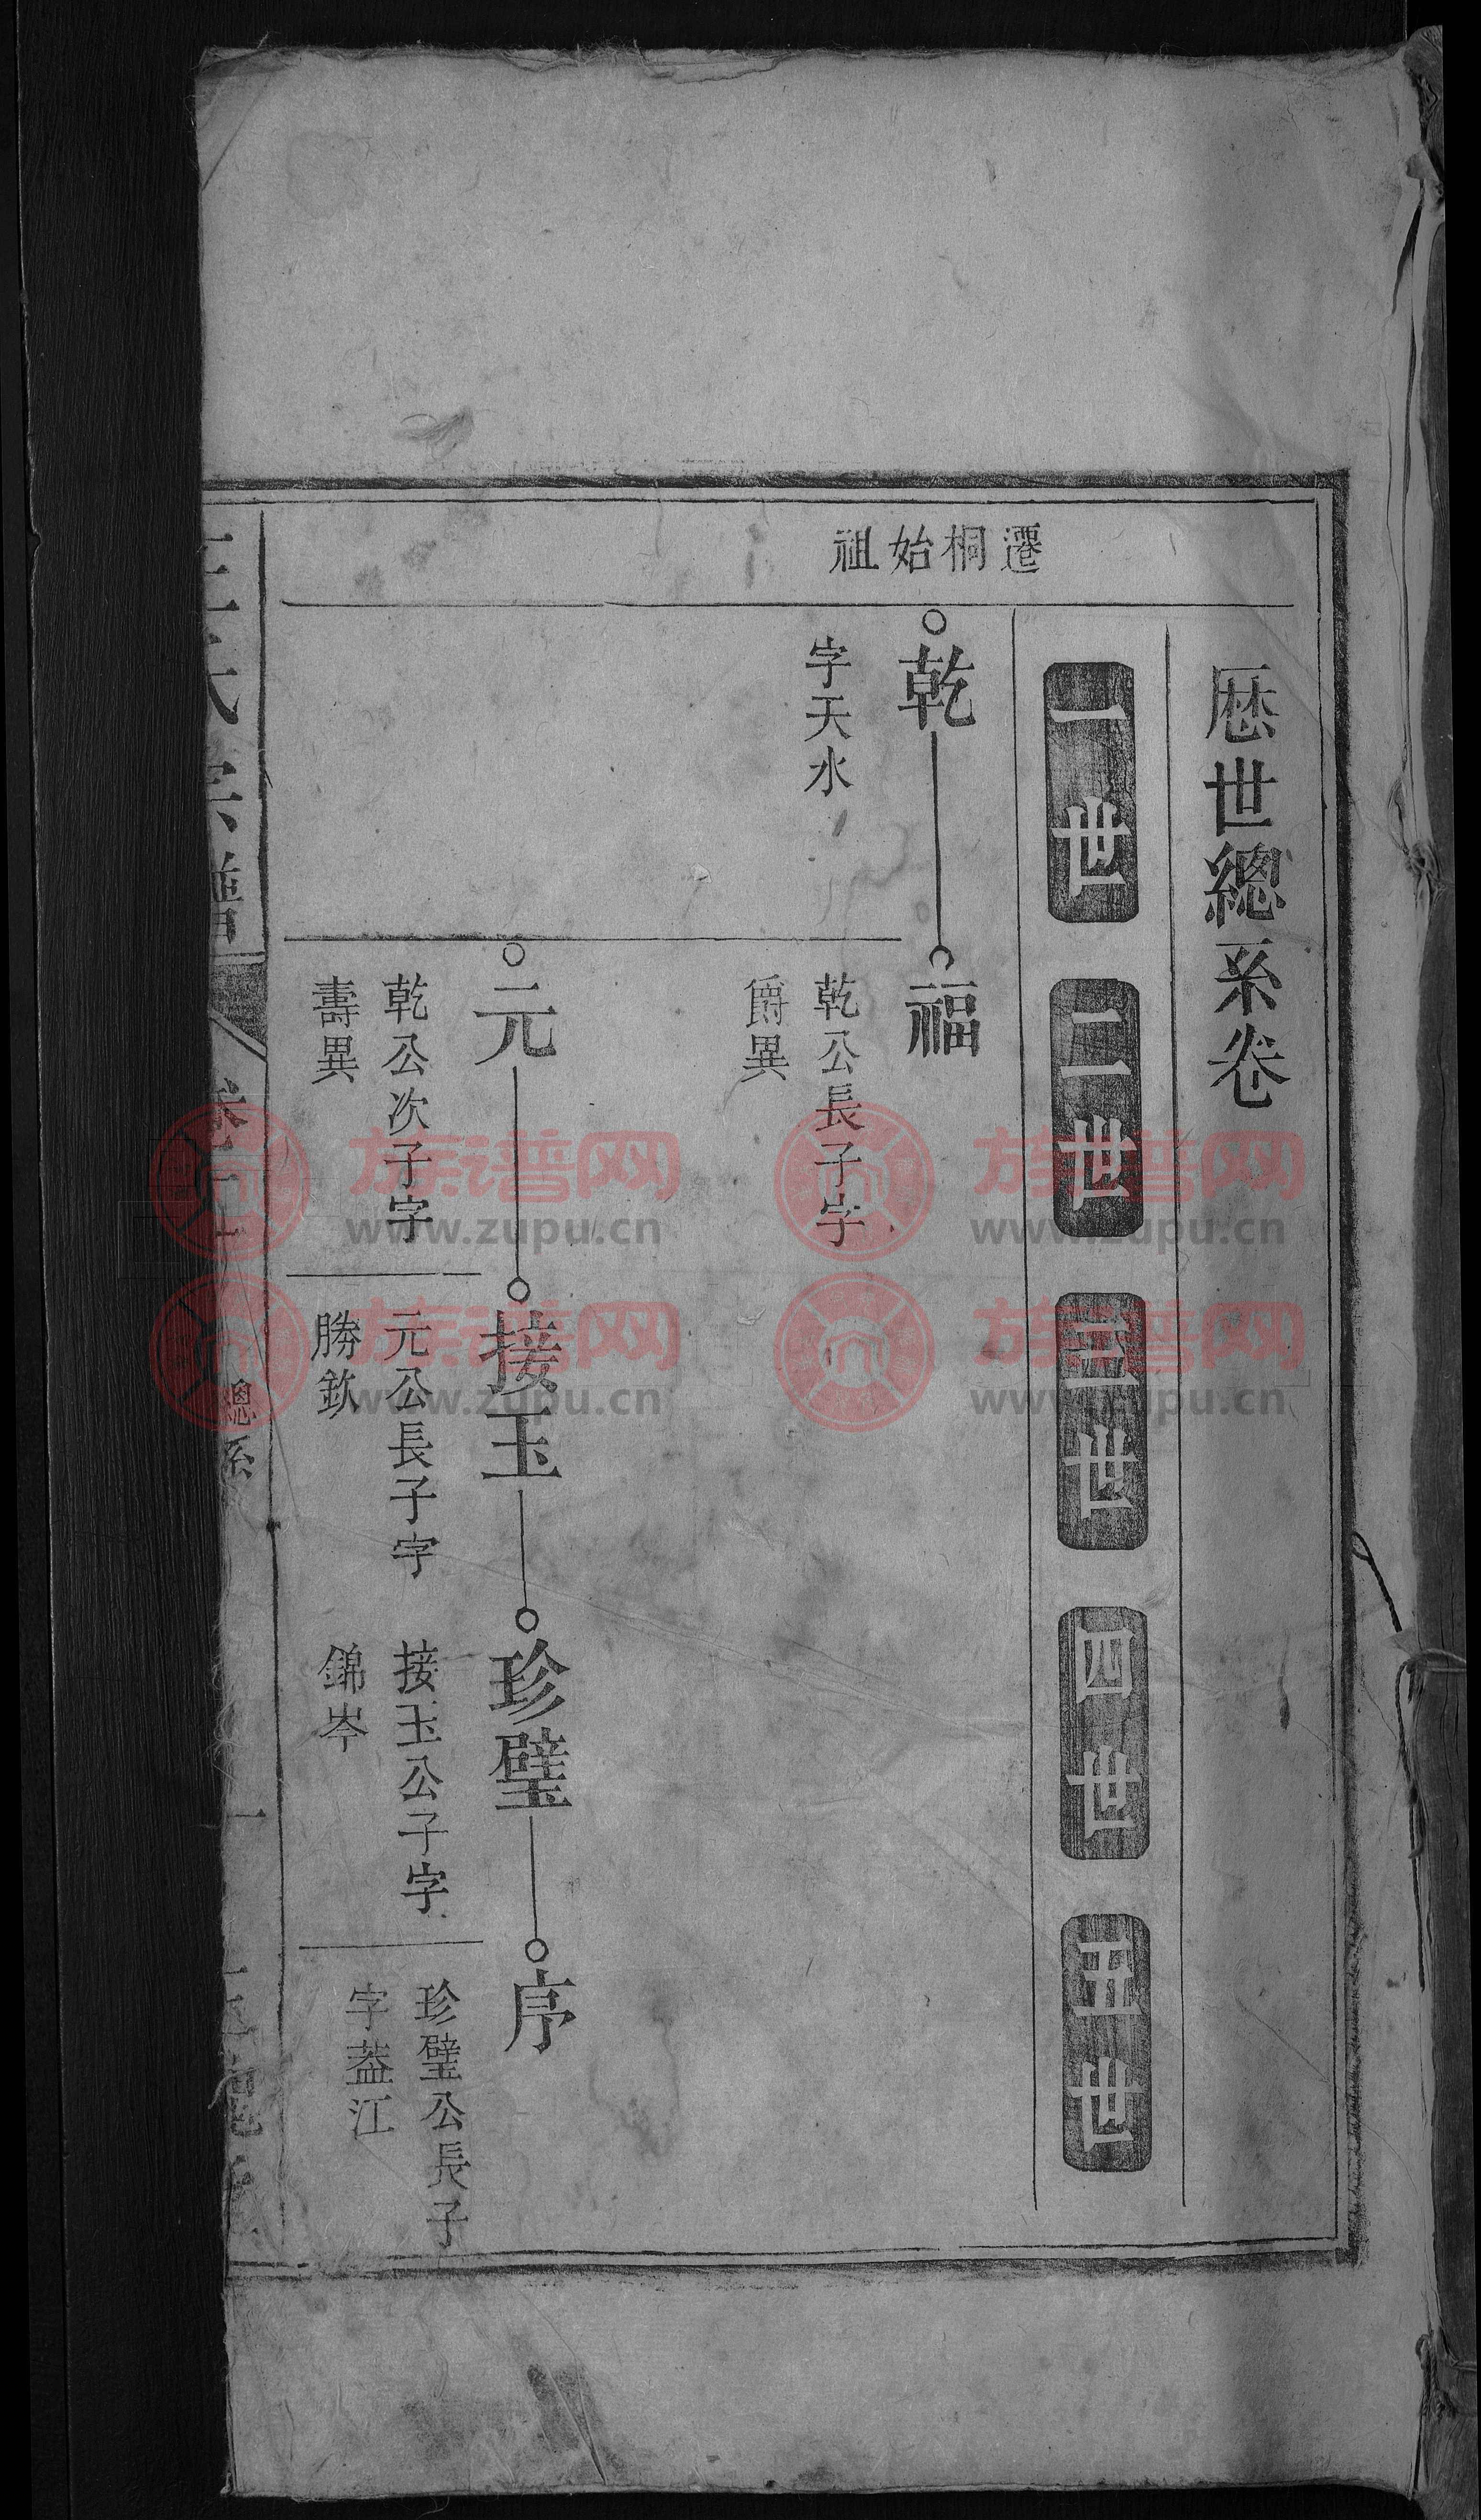 歴世總系卷
一世
二世
三世
四世
五世
遷桐始祖
乾
字天水
福
乾公長子字
爵異
元
乾公次子字
壽異
接玉
元公長子字
勝欽
珍璧
接玉公子字
錦岑
序
珍璧公長子
字葢江
氏宗譜
總系
一
族谱网
www.zupu.cn
族谱网
www.zupu.cn
族谱网
www.zupu.cn
族谱网
www.zupu.cn